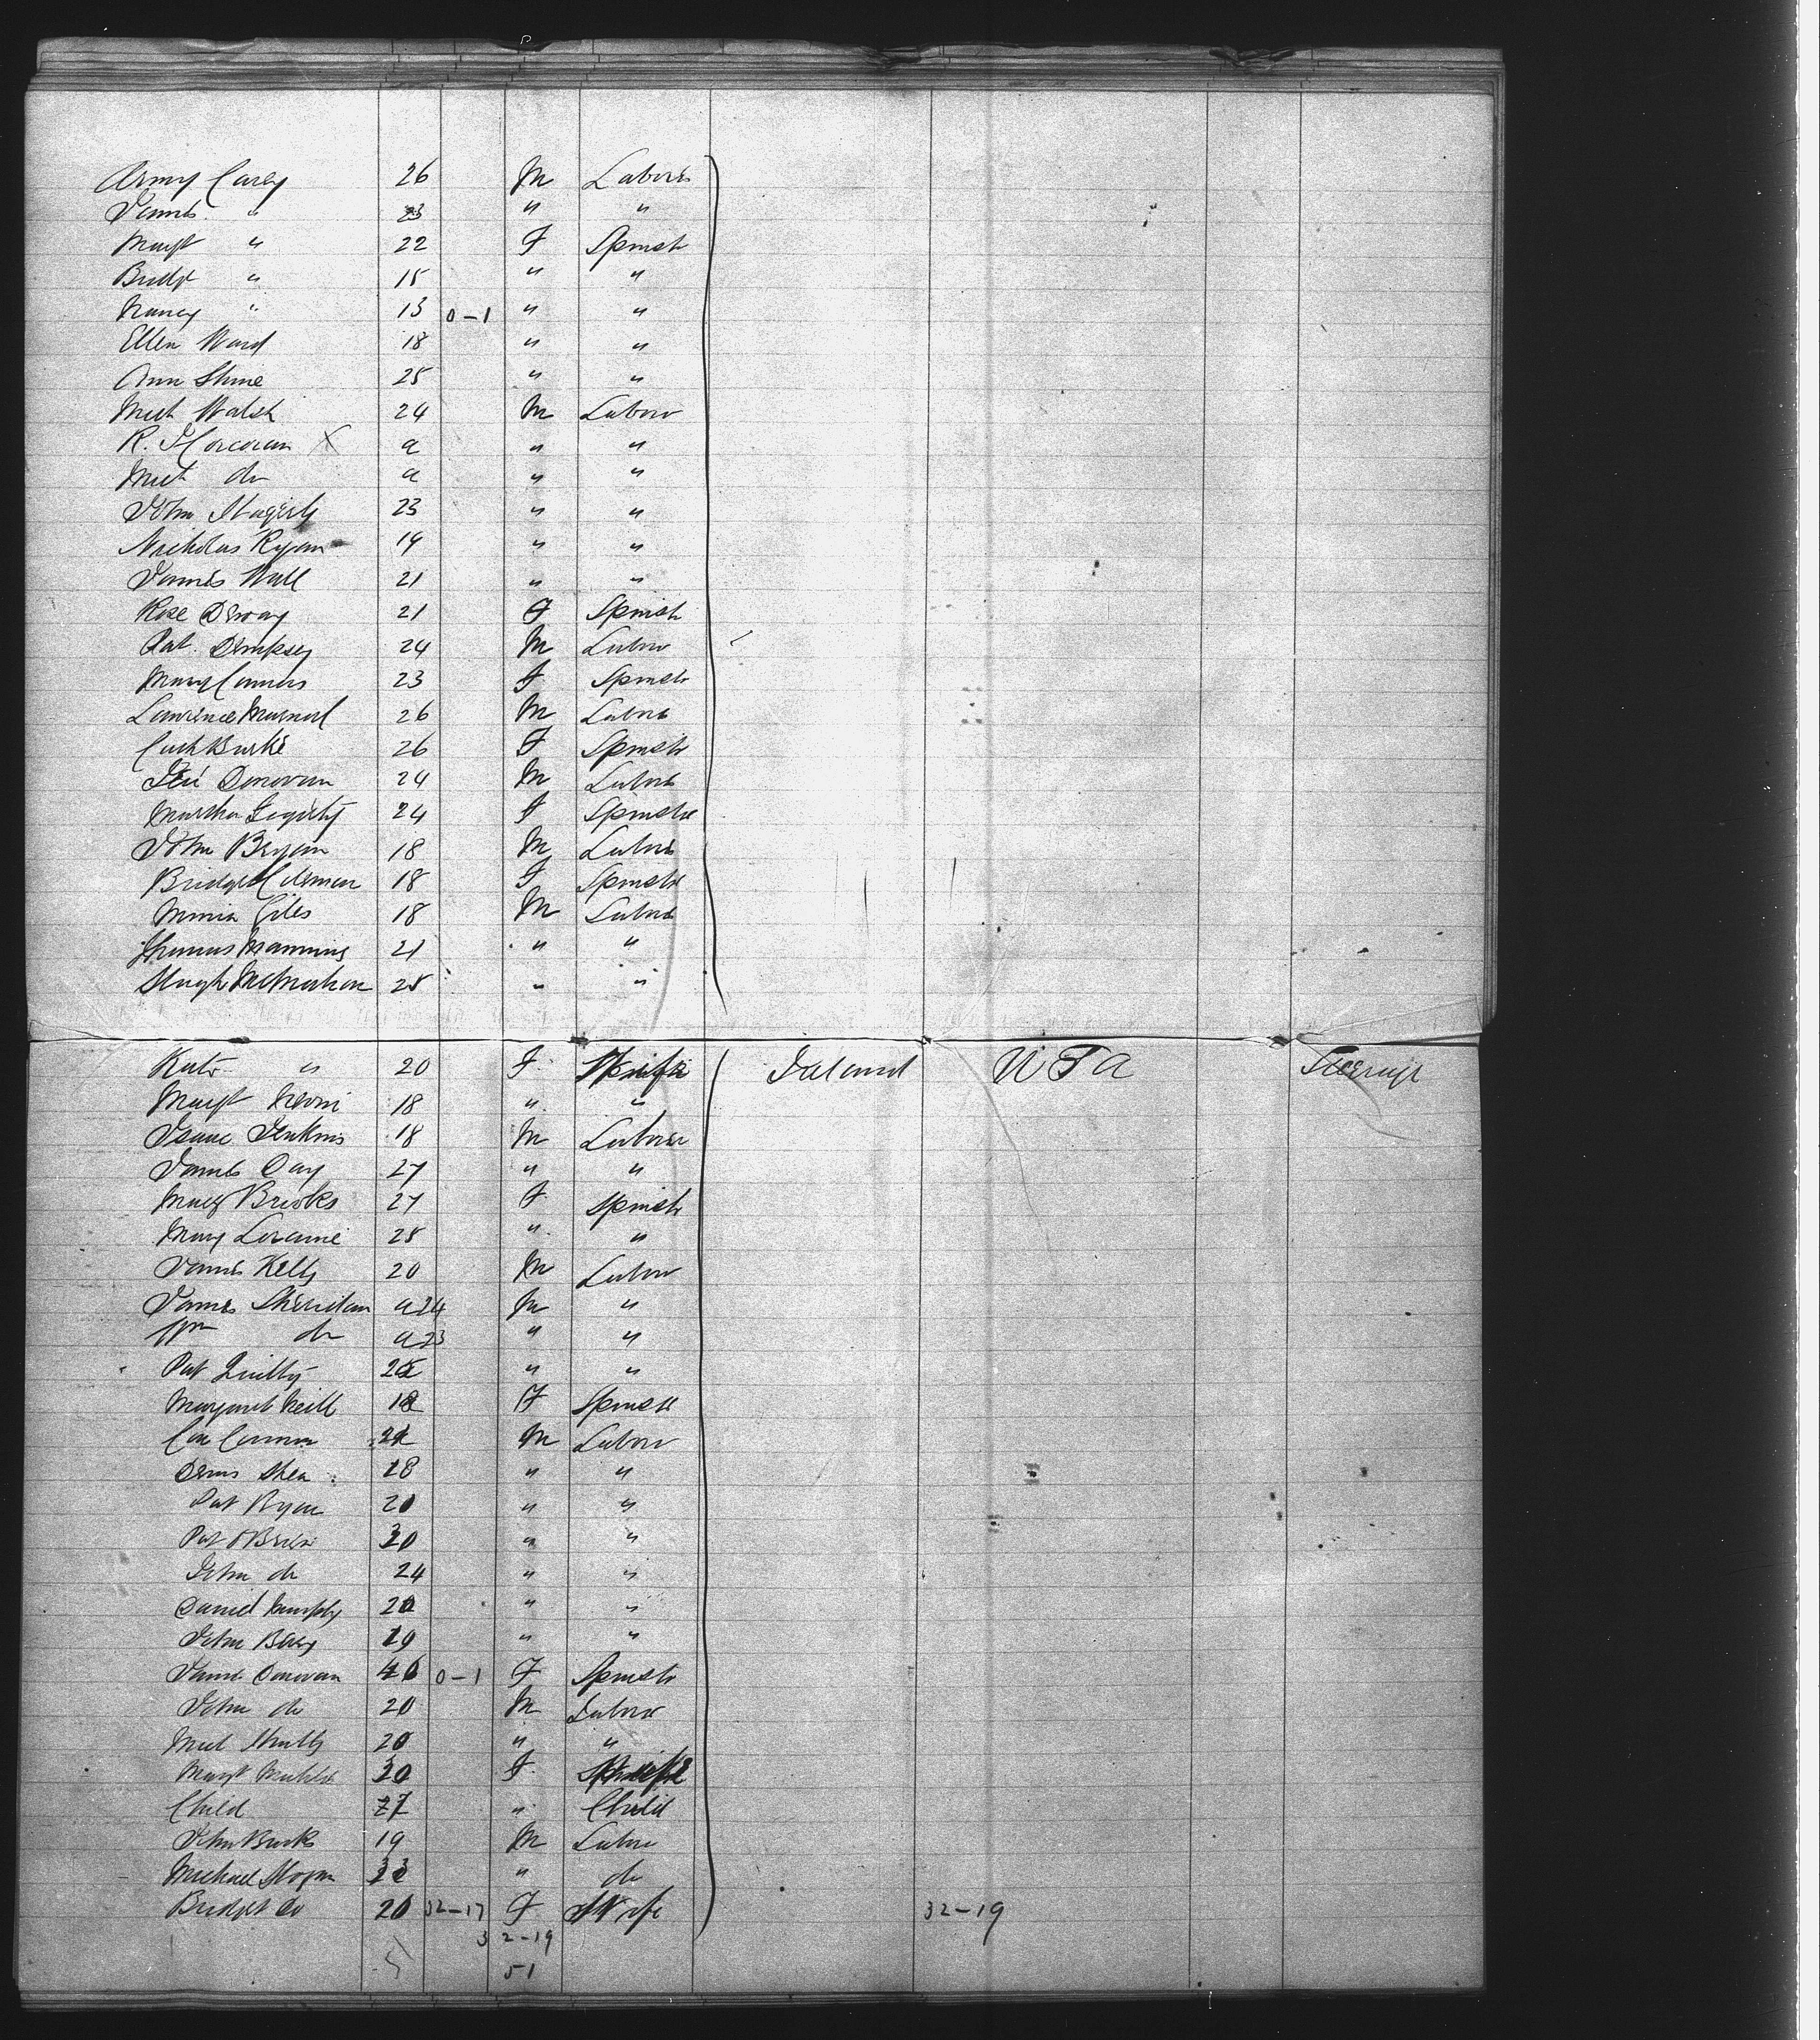 Carey 26 M Labores
James " 23 " "
Margt " 22 F Spinstr
Bridgt " 15 " "
Nancy " 13 0-1 " "
Ellen Ward 18 " "
Ann Shine 25 " "
Mich Walsh 24 M Labor
R. Horcoran X a " "
Mich do a " "
John Hagerty 23 " "
Nicholas Ryan 19 " "
James Wall 21 " "
Rose 21 F Spinstr
Pat. Dempsey 24 M Labor
Mary Connors 23 F Spinstr
Lawrence 26 M Labor
Cath Burke 26 F Spinstr
Donovan 24 M Labor
Martha Gogerty 24 F Spinstr
John Bryan 18 M Labor
Bridget 18 F Spinstr
Giles 18 M Labor
Thomas Manning 21 " "
Hugh McMahon 25 " "
Kate " 20 F Wife Ireland U S A Steerage
Margt 18 " "
Isaac Jenkins 18 M Laborer
James Day 27 " "
Mary Brooks 27 F Spinstr
Mary Loraine 25 " "
James Kelly 20 M Labor
James Sheridan a 24 M "
Wm do a 23 " "
Pat Quilty " "
Margaret Neill 18 F Spinstr
Con Connor M Labor
Denis Shea 18 " "
Pat Ryan 20 " "
Pat OBrien 30 " "
John do 24 " "
Daniel Murphy 20 " "
John Barry 19 " "
Donovan 40 0-1 F Spinstr
John do 20 M Labor
Mich 20 " "
Margt 30 F Wife
Child " Child
John Burke 19 M Labor
Michael Hogan 33 " do
Bridget Do 20 32-17 F Wife 32-19
3 2-19
51